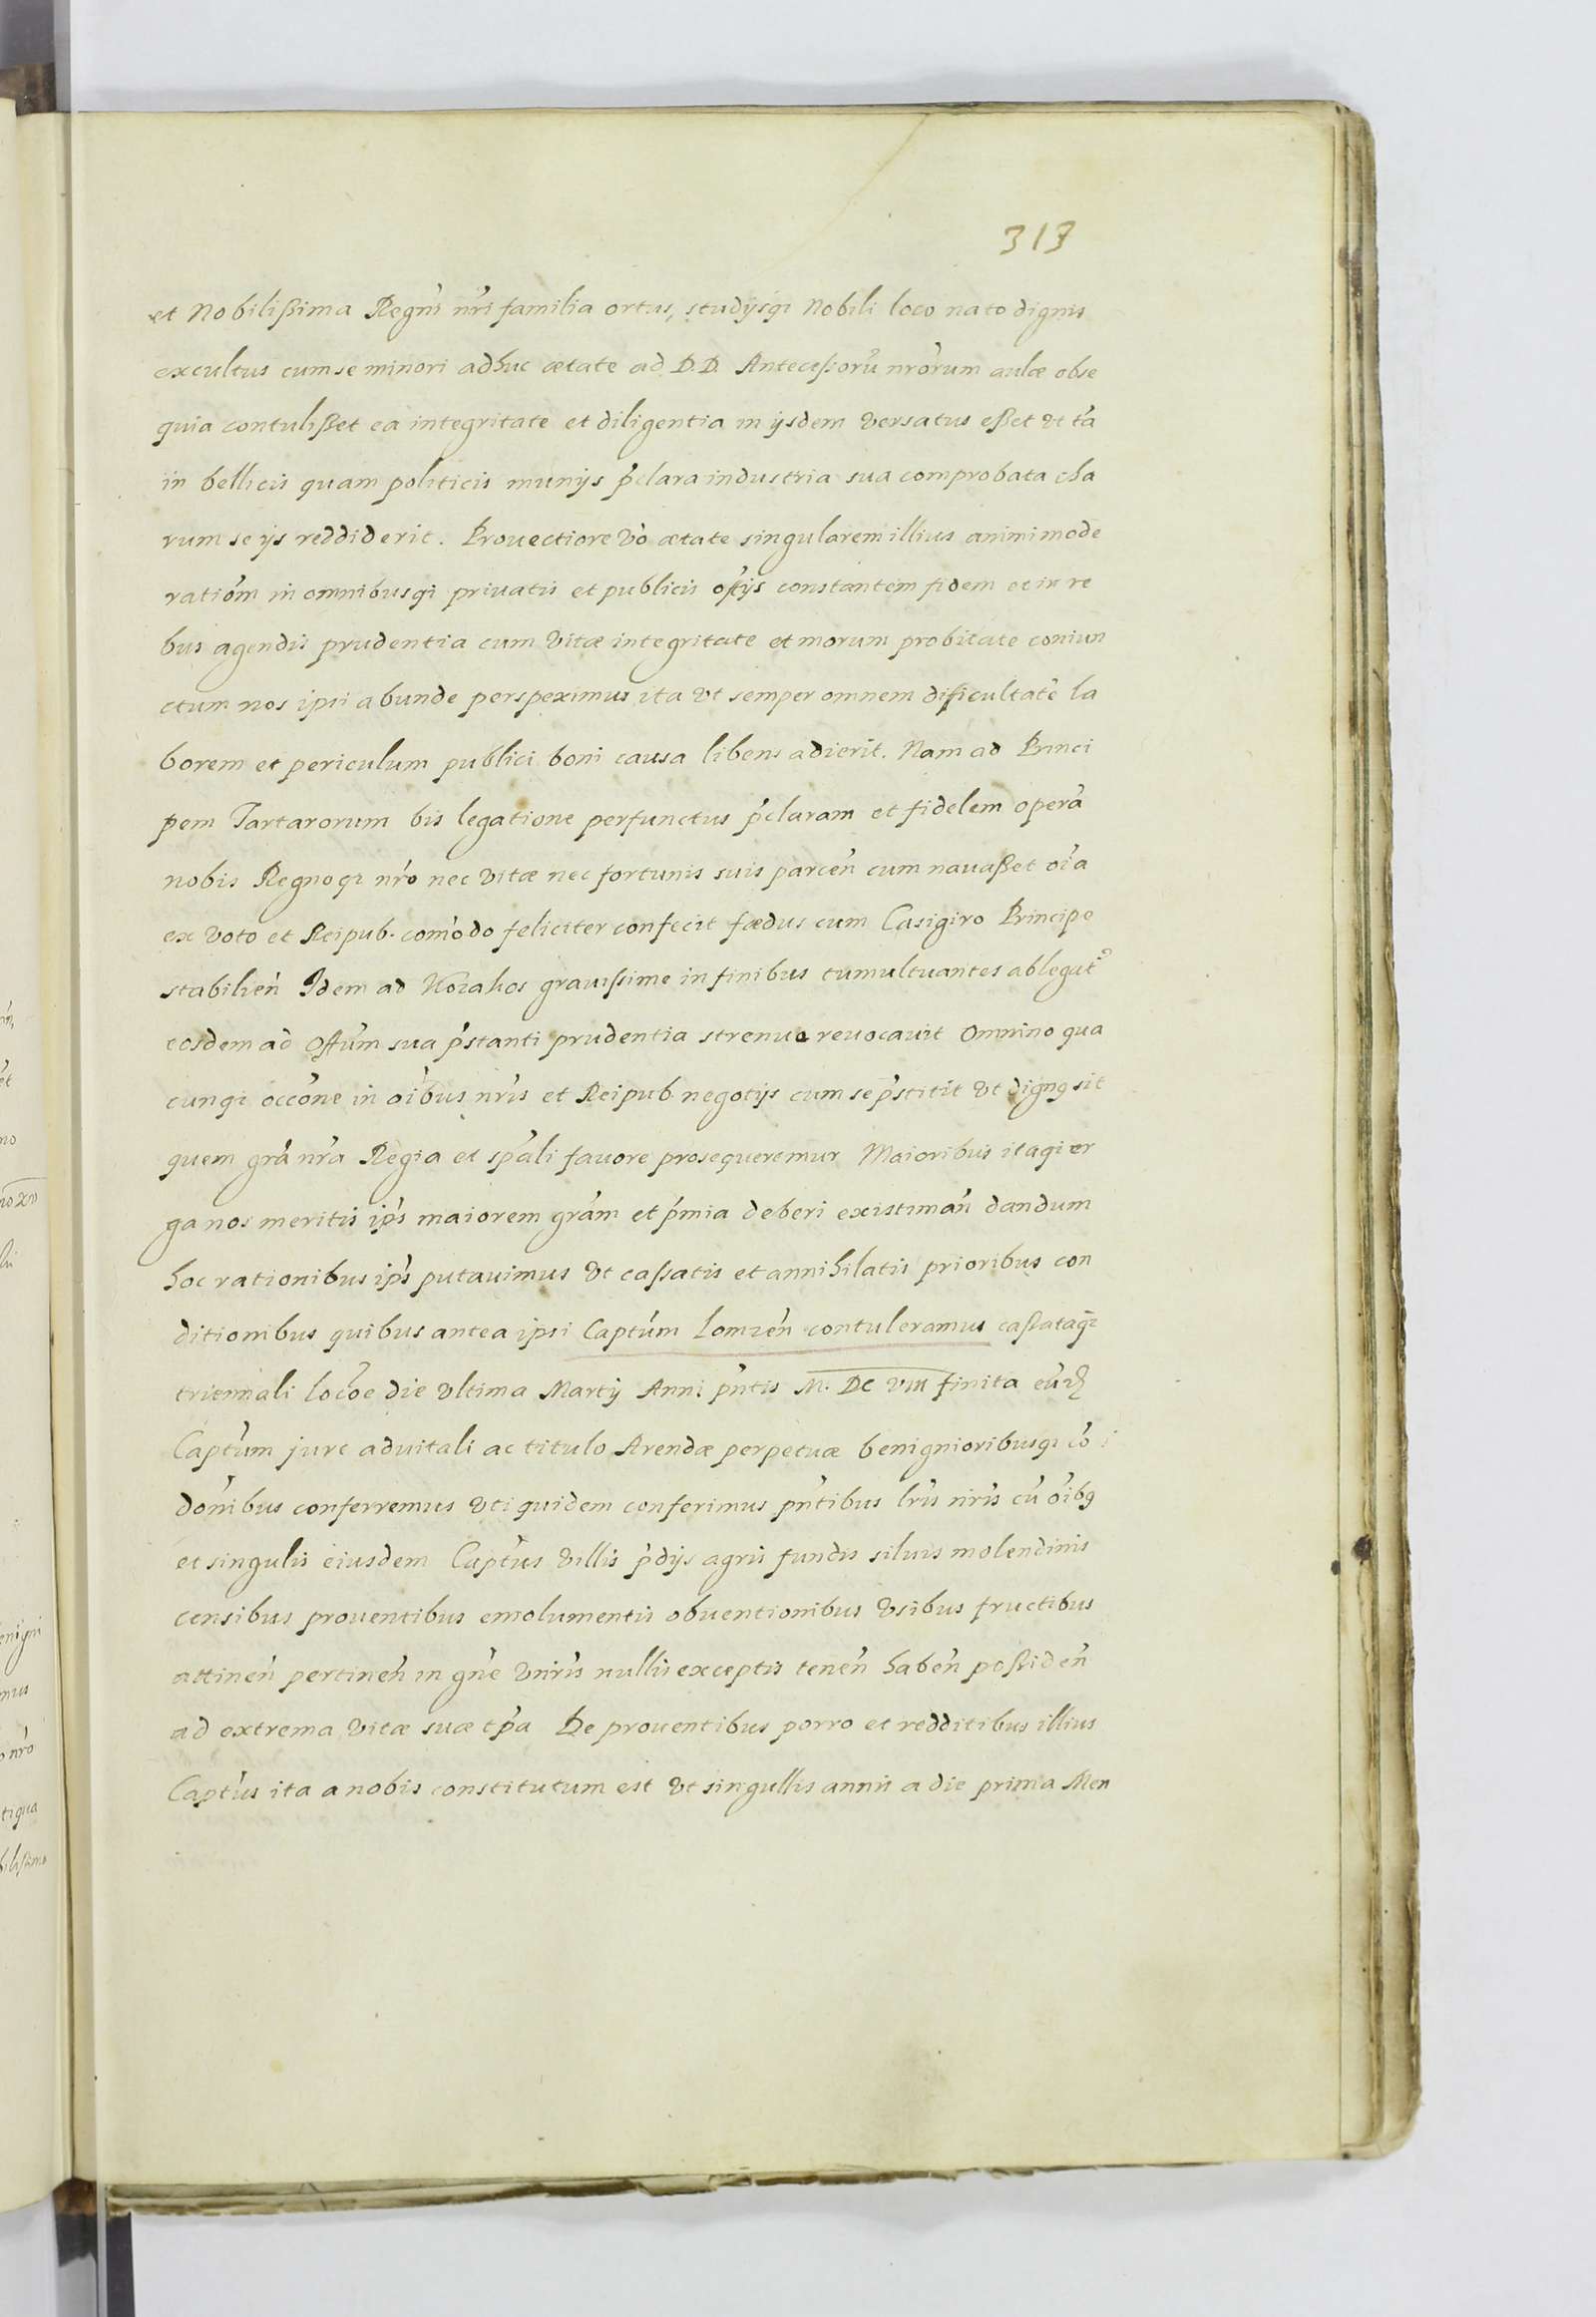 313
et Nobilißima Regni nr̃i familia ortus, studijsq; Nobili loco nato dignis
excultus cum se minori adhuc ætate ad D.D. Anteceßorũ nrõrum aulæ obse
quia contulißet ea integritate et diligentia in ijsdem versatus eßet vt tã
in bellicis quam politicis munijs p̃clara industria sua comprobata cha
rum se ijs reddiderit. Prouectiore võ ætate singularem illius animi mode
ratiõm in omnibusq; priuatis et publicis offijs constantem fidem et in re
bus agendis prudentia cum vitæ integritate et morum probitate coniun
ctum nos ipsi abunde perspeximus ita vt semper omnem dificultatẽ la
borem et periculum publici boni causa libens adierit. Nam ad Princi
pem Tartarorum bis legatione perfunctus p̃claram et fidelem operã
nobis Regnoq; nr̃o nec vitæ nec fortunis suis parceñ cum nauaßet oĩa
ex voto et Reipub. com̃odo feliciter confecit fædus cum Casigiro Principe
stabilieñ Idem ad Kozakos grauissime in finibus tumultuantes ablegat9
eosdem ad Offũm sua p̃stanti prudentia strenue reuocauit Omnino qua
cunq; occõne in oĩbus nr̃is et Reipub. negotijs eum se p̃stitit vt dign9 sit
quem gr̃a nr̃a Regia et sp̃ali fauore prosequeremur Maioribus itaq; er
ga nos meritis ip̃s maiorem gr̃am et p̃mia deberi existimañ dandum
hoc rationibus ip̃s putauimus vt cassatis et annihilatis prioribus con
ditionibus quibus antea ipsi Captũm Lomzeñ contuleramus caßataq;
triennali locõe die vltima Martij Anni pñtis M. DC VIII finita
Captũm jure aduitali ac titulo Arendæ perpetuæ benignioribusq; cõ
dõnibus conferremus vti quidem conferimus pñtibus lr̃is nr̃is cũ oĩb9
et singulis eiusdem Captũs villis p̃dijs agris fundis siluis molendinis
censibus prouentibus emolumentis obuentionibus vsibus fructibus
attineñ pertineñ in gñe vnir̃s nullis exceptis teneñ habeñ poßideñ
ad extrema vitæ suæ tp̃a De prouentibus porro et redditibus illius
Captũs ita a nobis constitutum est vt singullis annis a die prima Men